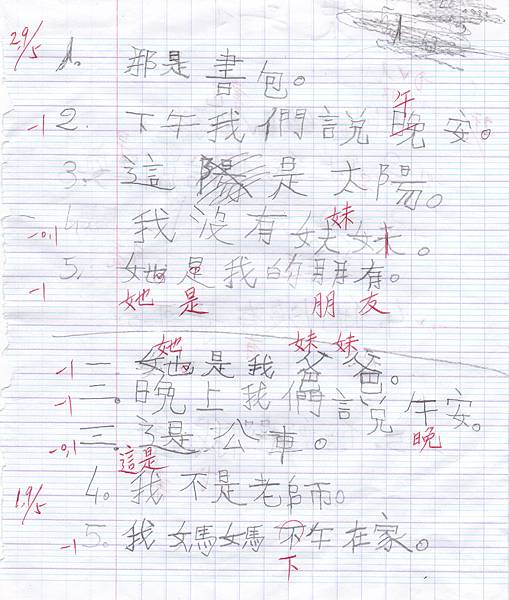 2.9/5 1. 那是書包。
午
-1 2. 下午我們說晚安。
3. 這 是太陽。
妹
-0,1 4. 我沒有妹妹。
-1 5. 她是我的朋有。
她 是 朋 友
她 妹 妹
-1 一 她是我爸爸。
-1 二。晚上我們說午安。
晚
-0,1 三. 這是公車。
這是
4. 我不是老師。
1.9/5
-1 5. 我媽媽不午在家。
下